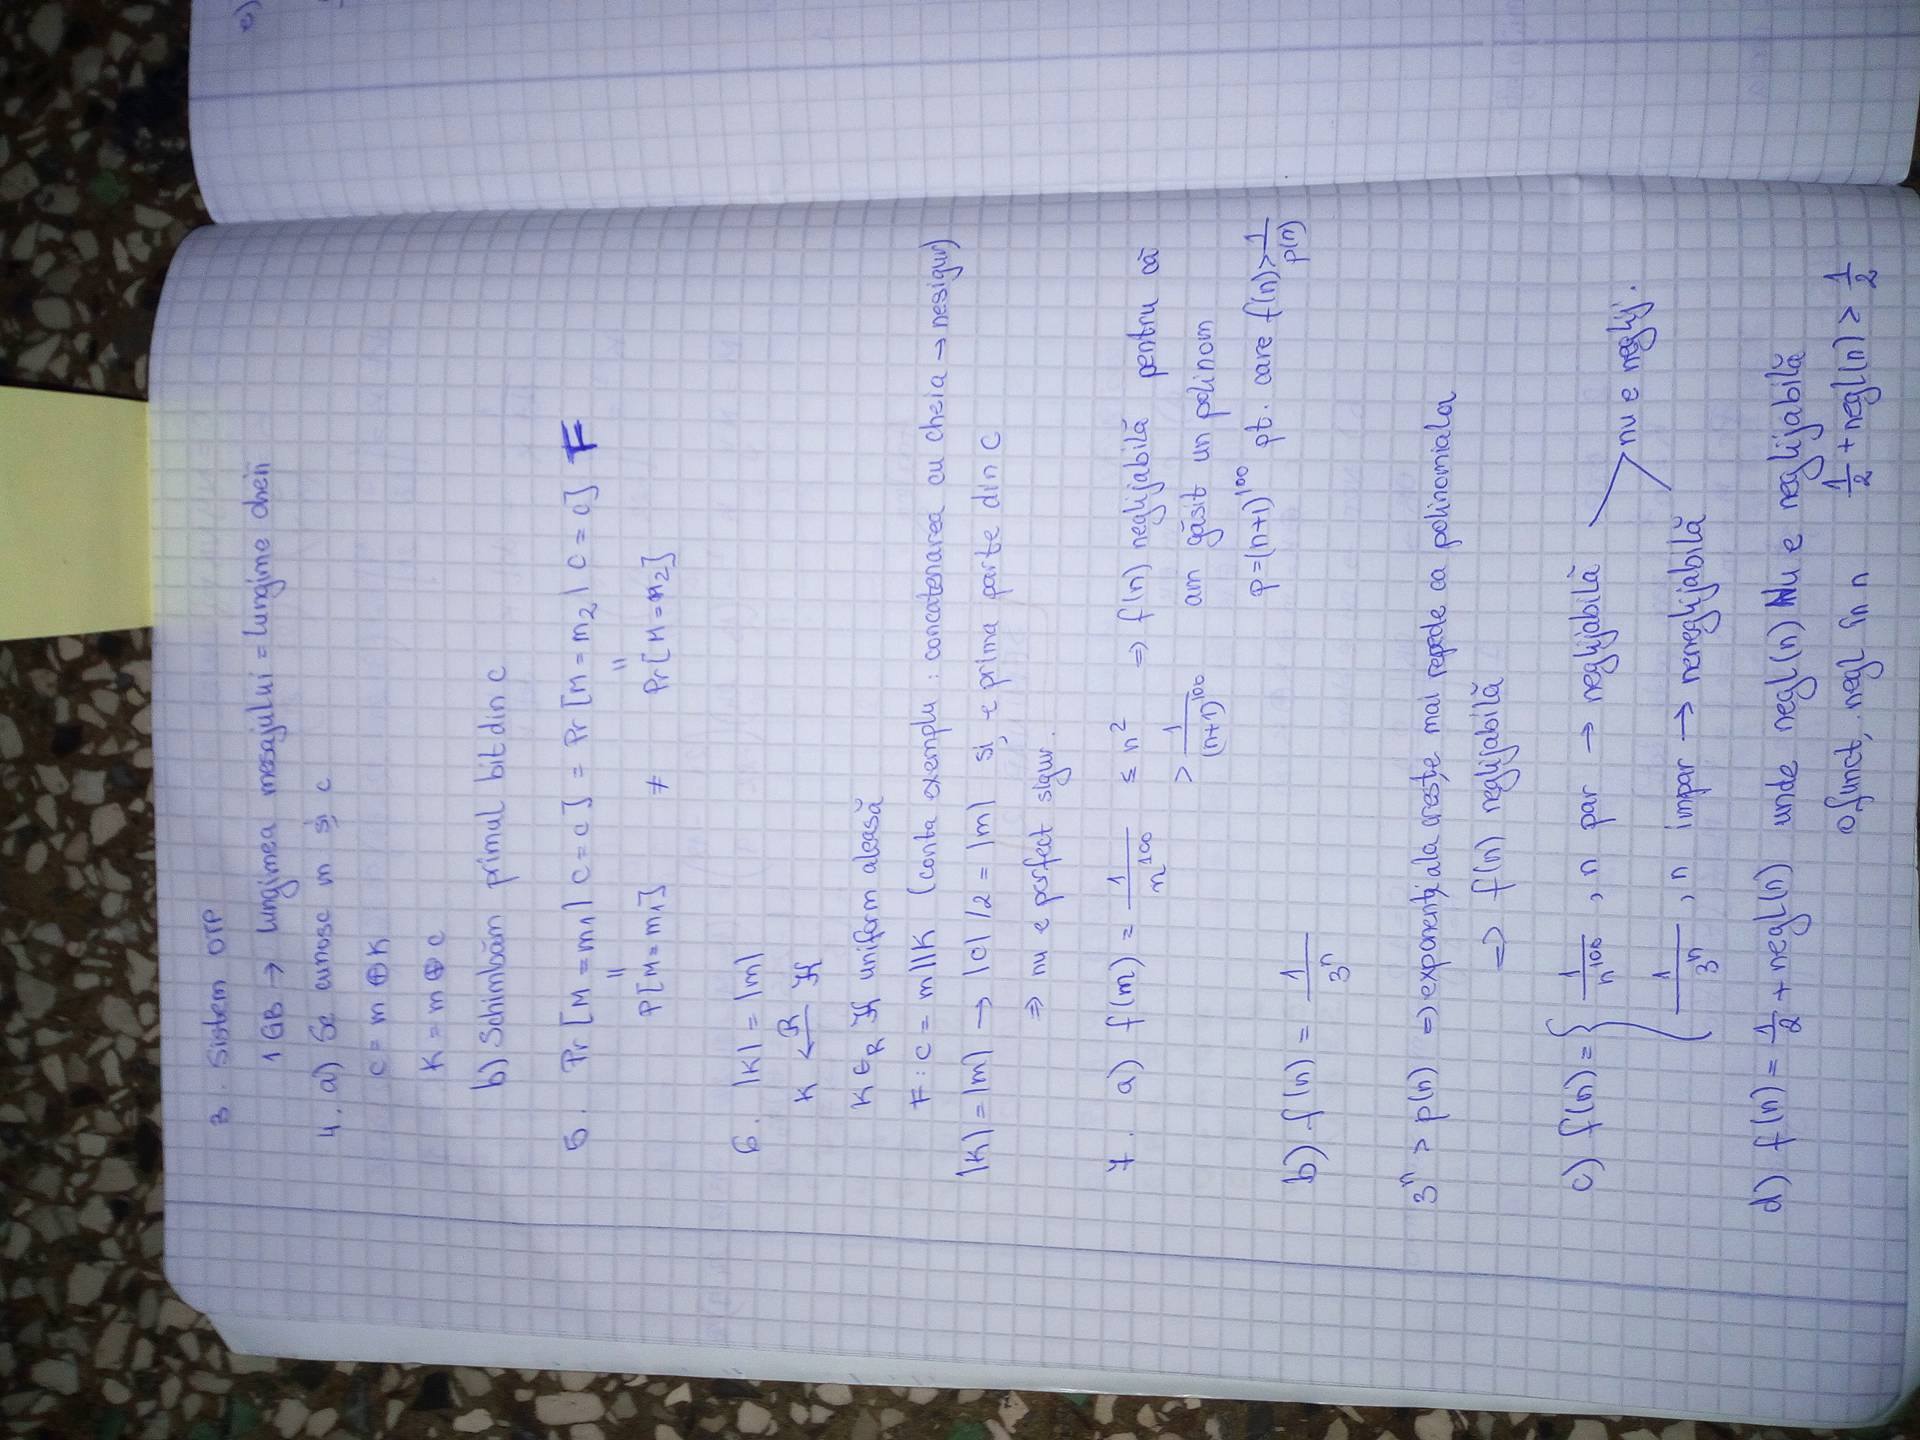 3. Sistem OTP
1 GB → lungimea mesajului = lungime cheii
4. a) Se cunosc m și c
c = m ⊕ K
K = m ⊕ c
b) Schimbăm primul bit din c
5. Pr [M = m₁ | C = c] = Pr [M = m₂ | C = c] F
" "
P[M = m₁] ≠ Pr[M = m₂]
6. |K| = |m|
K ←ᴿ 𝒦
K ∈_R 𝒦 uniform aleasă
F: c = m||K (conta exemplu: concatenarea cu cheia → nesigur)
|K| = |m| → |c|/2 = |m| și e prima parte din c
⇒ nu e perfect sigur.
7. a) f(m) = 1/n¹⁰⁰ ≤ n² ⇒ f(n) neglijabilă pentru că
> 1/(n+1)¹⁰⁰ am găsit un polinom
p = (n+1)¹⁰⁰ pt. care f(n) > 1/p(n)
b) f(n) = 1/3ⁿ
3ⁿ > p(n) ⇒ exponențiala crește mai repede ca polinomiala
⇒ f(n) neglijabilă
c) f(n) = { 1/n¹⁰⁰, n par → neglijabilă
nu e neglij.
1/3ⁿ, n impar → neneglijabilă
d) f(n) = 1/2 + negl(n) unde negl(n) Nu e neglijabilă
o funcț. negl în n 1/2 + negl(n) > 1/2
e)